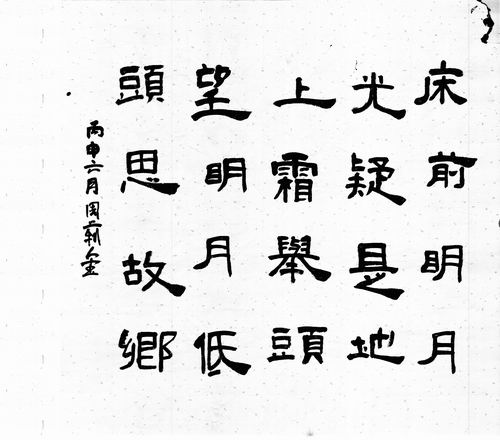 床前明月
光疑是地
上霜舉頭
望明月低
頭思故鄉
丙申六月周